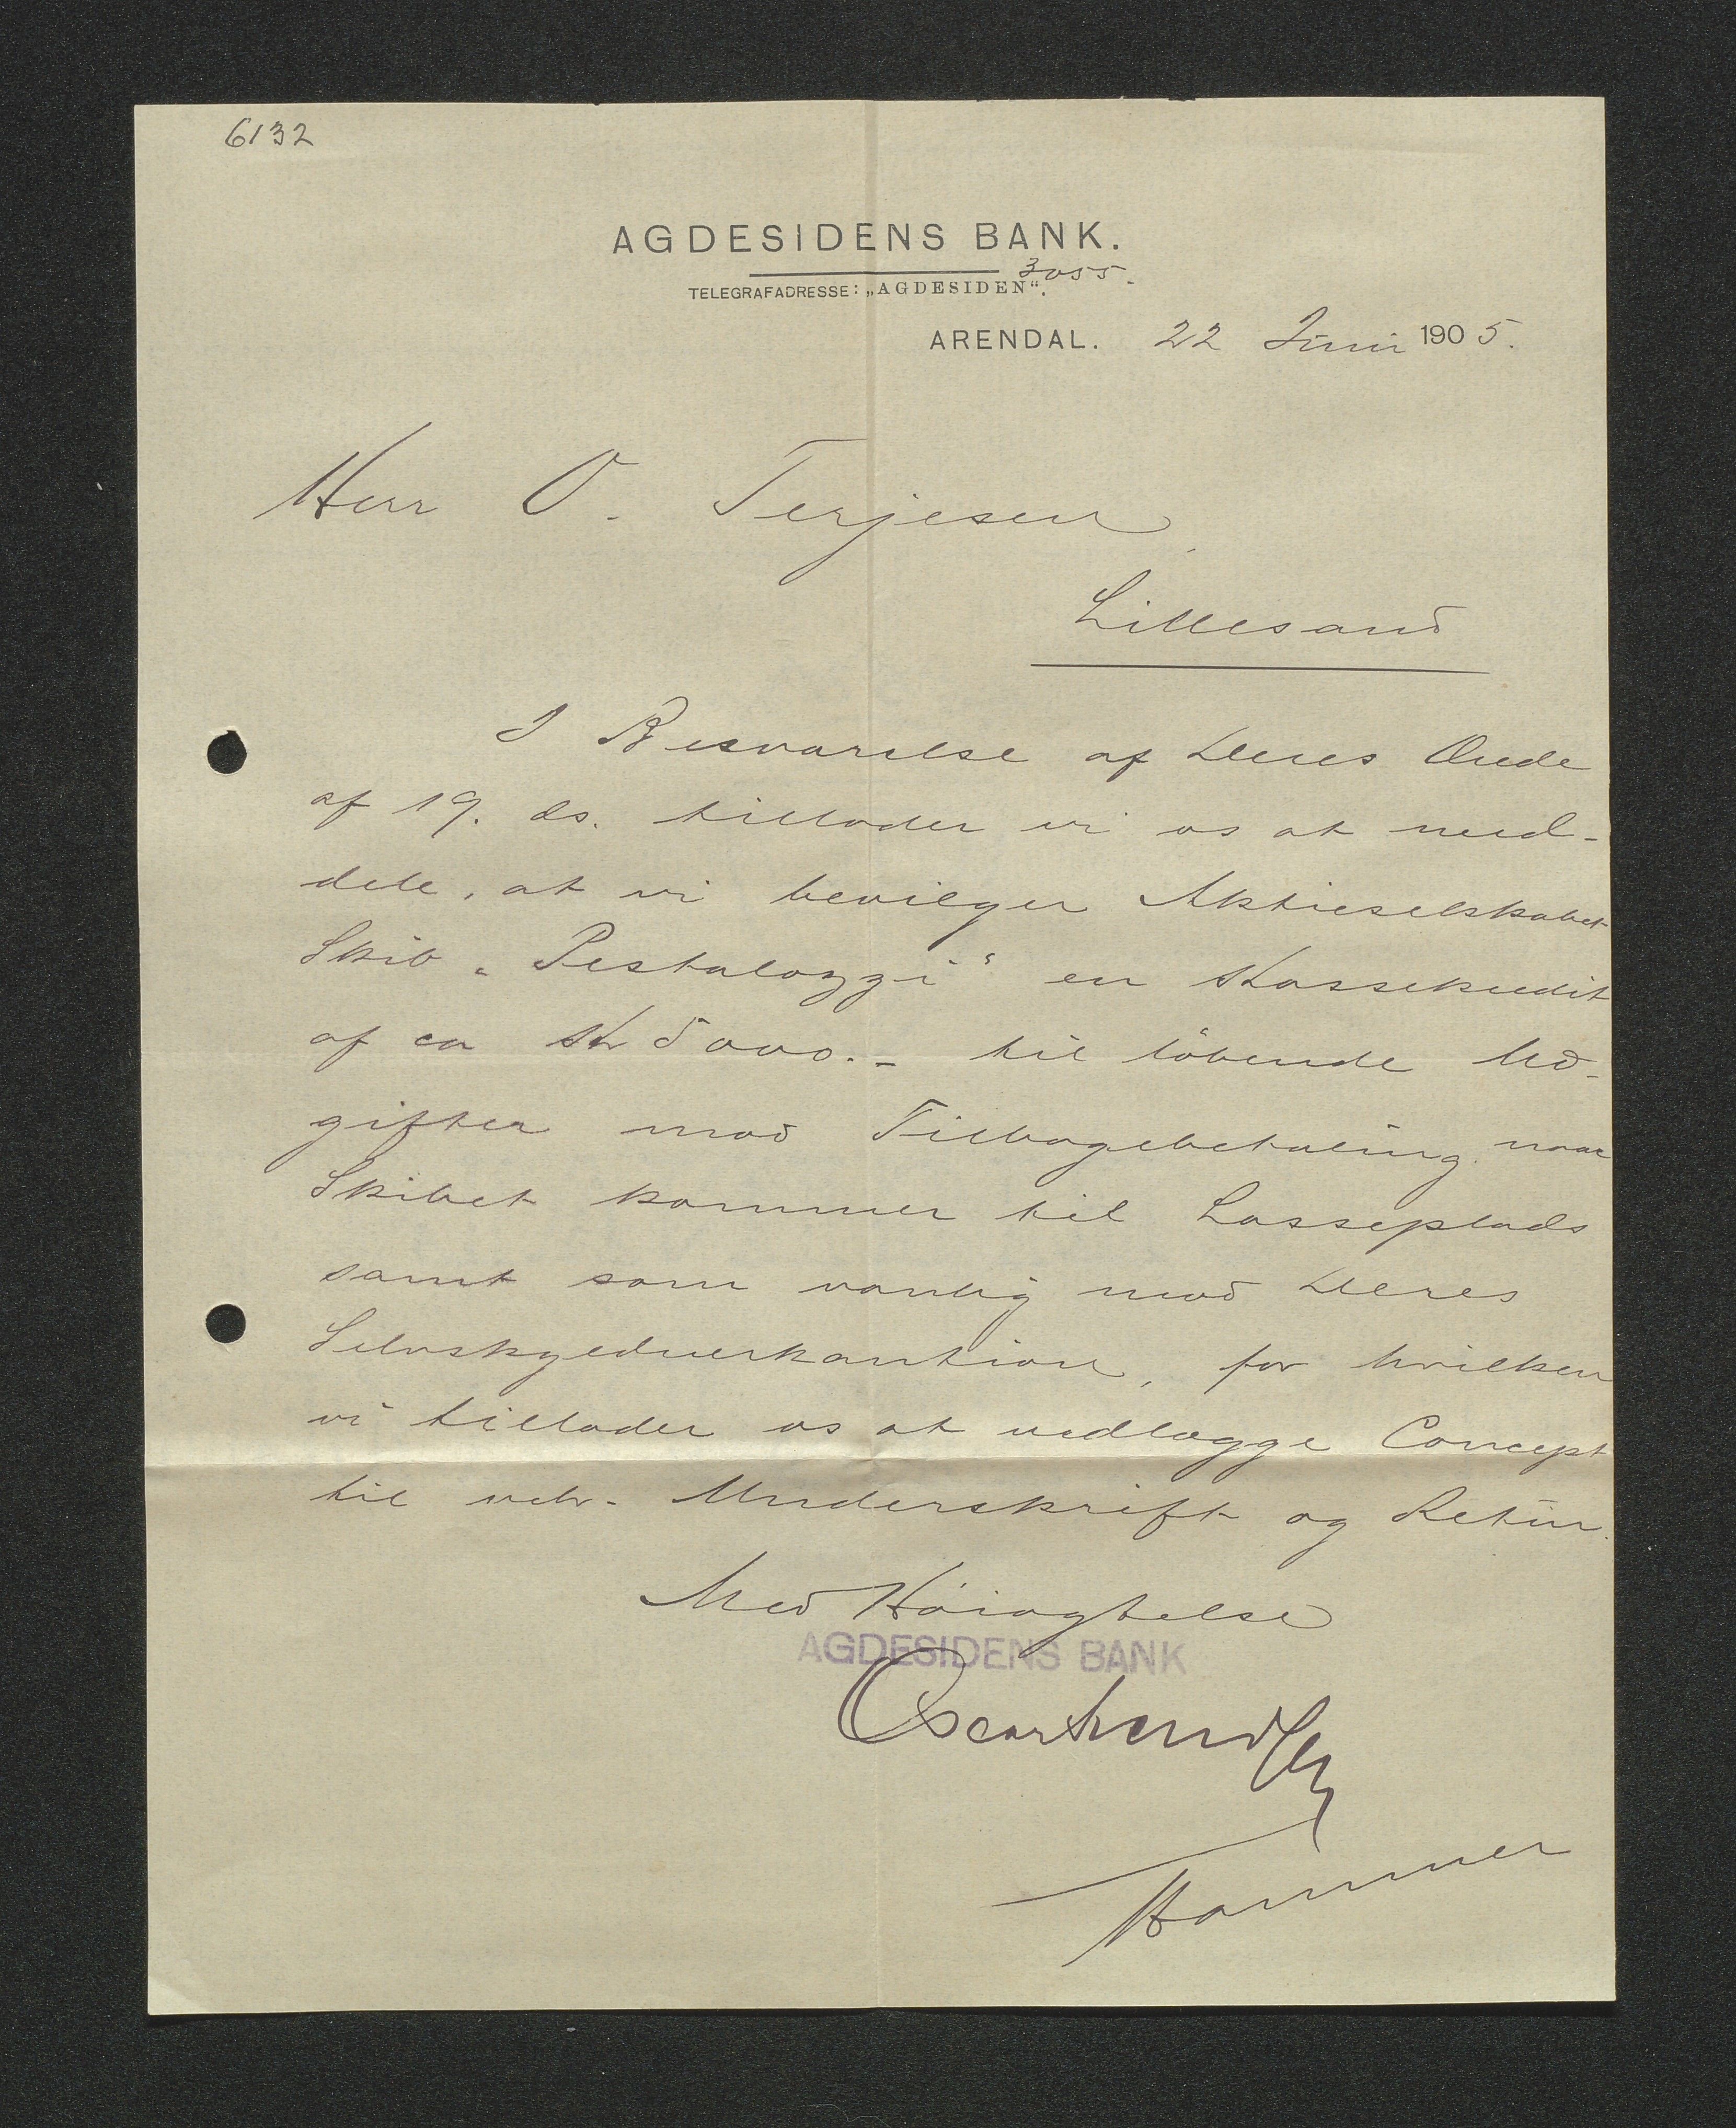 6132
AGDESIDENS BANK.
3055.
TELEGRAFADRESSE: „AGDESIDEN“.
ARENDAL. 22 Juni 1905.
Herr O. Terjesen,
Lillesand
I Besvarelse af Deres Ærede
af 19. ds. tillader vi os at med-
dele, at vi bevilger Aktieselskabet
Skib „Pestalozzi“ en Kassekredit
af ca Kr 5000.- til løbende Ud-
gifter mod Tilbagebetaling naar
Skibet kommer til Losseplads
samt som vanlig mod Deres
Selvskyldnerkaution, for hvilken
vi tillader os at vedlægge Concept
til velv. Underskrift og Retur.
Med Høiagtelse
AGDESIDENS BANK
Oscar
Hammer